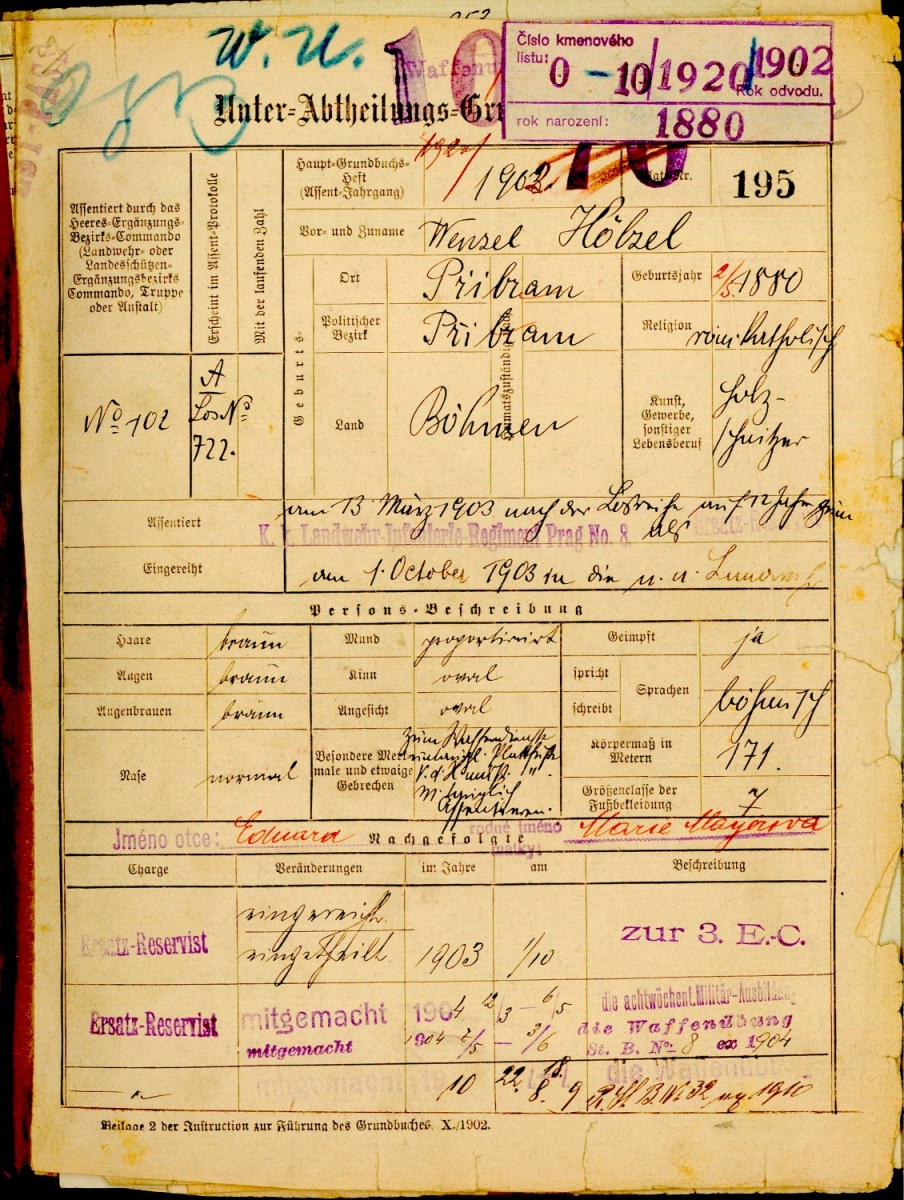 W. U.
Číslo kmenového
listu: 0 - 10/1920/1902
Rok odvodu.
rok narození: 1880
Unter-Abtheilungs-
Assentiert durch das
Heeres-Ergänzungs-
Bezirks-Commando
(Landwehr- oder
Landesschützen-
Ergänzungsbezirks
Commando, Truppe
oder Anstalt)
Erscheint im Assent-Protokolle
Mit der laufenden Zahl
Haupt-Grundbuchs-
Heft
(Assent-Jahrgang)
1902.
195
Vor- und Zuname
Wenzel Hölzel
Geburts-
Ort
Přibram
Geburtsjahr
2/5 1880
Politischer
Bezirk
Přibram
Religion
röm: katholisch
No 102
A
Los No
722.
Land
Böhmen
Kunst,
Gewerbe,
sonstiger
Lebensberuf
Holz-
schnitzer
Assentiert
am 13 März 1903 nach der Losreihe auf 12 Jahre zum
K. k. Landwehr-Infanterie-Regiment Prag No. 8. als
Eingereiht
am 1. October 1903 in die n. a. Landwehr
Persons-Beschreibung
Haare
braun
Mund
proportionirt
Geimpft
ja
Augen
braun
Kinn
oval
spricht
schreibt
Sprachen
böhmisch
Augenbrauen
braun
Angesicht
oval
Nase
normal
Besondere Merk-
male und etwaige
Gebrechen
zum Waffendienste
Assentieren.
Körpermaß in
Metern
171.
Größenclasse der
Fußbekleidung
7
Jméno otce: Eduard
Nachgefolgte
rodné jméno
matky:
Marie Mayerová
Charge
Veränderungen
im Jahre
am
Beschreibung
Ersatz-Reservist
eingereicht
eingetheilt
1903
1/10
zur 3. E.-C.
Ersatz-Reservist
mitgemacht
1904
12/3 - 6/5
die achtwöchent. Militär-Ausbildung
mitgemacht
1904
2/5 - 3/6
die Waffenübung
St. B. No: 8 ex 1904
10
22. 18.
8. 9
die Waffenüb
B. No 32 ex 1910
Beilage 2 der Instruction zur Führung des Grundbuches. X./1902.